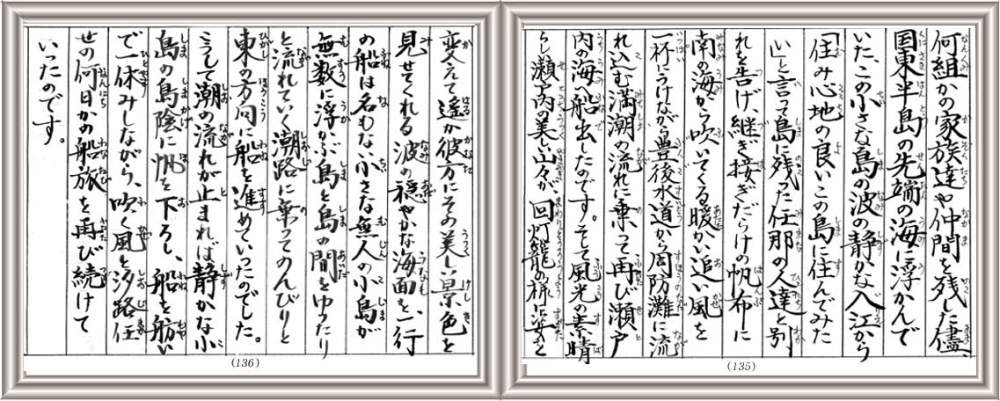 何組かの家族達や仲間を残した儘、
国東半島の先端の海に浮かんで
いたこの小さな島の波の静かな入江から
「住み心地の良いこの島に住んでみた
い」と言って島に残った任那の人達と別
れを告げ、継ぎ接ぎだらけの帆布に
南の海から吹いてくる暖かい追い風を
一杯にうけながら豊後水道から周防灘に流
れ込む満潮の流れに乗って再び瀬戸
内の海へ船出したのです。そして風光の素晴
らしい瀬戸内の美しい山々が、回灯籠の様に姿を
(135)
変えて遥か彼方にその美しい景色を
見せてくれる波の穏やかな海面を、一行
の船は名もない小さな無人の小島が
無数に浮かぶ島と島の間をゆったり
と流れていく潮路に乗ってのんびりと
東の方向に船を進めていったのでした。
こうして潮の流れが止まれば静かな小
島の島陰に帆を下ろし、船を舫い
で一休みしながら、吹く風と汐路任
せの何日かの船旅を再び続けて
いったのです。
(136)